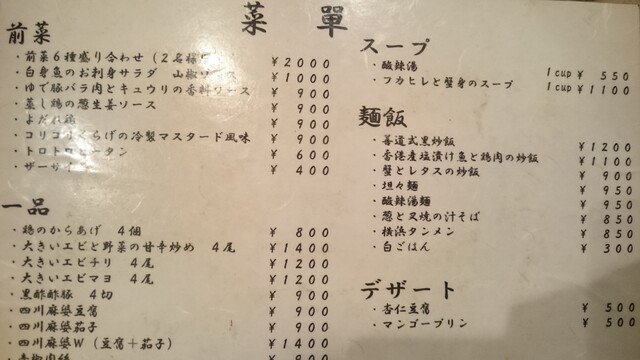 菜單
前菜
・前菜6種盛り合わせ(2名様 ¥2000
・白身魚のお刺身サラダ 山椒ソース ¥1000
・ゆで豚バラ肉とキュウリの香料ソース ¥900
・蒸し鶏の葱生姜ソース ¥900
・よだれ鶏 ¥900
・コリコリくらげの冷製マスタード風味 ¥900
・トロトロピータン ¥600
・ザーサイ ¥400
一品
・鶏のからあげ 4個 ¥800
・大きいエビと野菜の甘辛炒め 4尾 ¥1400
・大きいエビチリ 4尾 ¥1200
・大きいエビマヨ 4尾 ¥1200
・黒酢酢豚 4切 ¥900
・四川麻婆豆腐 ¥900
・四川麻婆茄子 ¥900
・四川麻婆W(豆腐+茄子) ¥1400
・青椒肉絲 ¥900
スープ
・酸辣湯 1cup ¥550
・フカヒレと蟹身のスープ 1cup ¥1100
麺飯
・善道式黒炒飯 ¥1200
・香港産塩漬け魚と鶏肉の炒飯 ¥1100
・蟹とレタスの炒飯 ¥900
・坦々麺 ¥950
・酸辣湯麺 ¥950
・葱と叉焼の汁そば ¥850
・横浜タンメン ¥850
・白ごはん ¥300
デザート
・杏仁豆腐 ¥500
・マンゴープリン ¥500